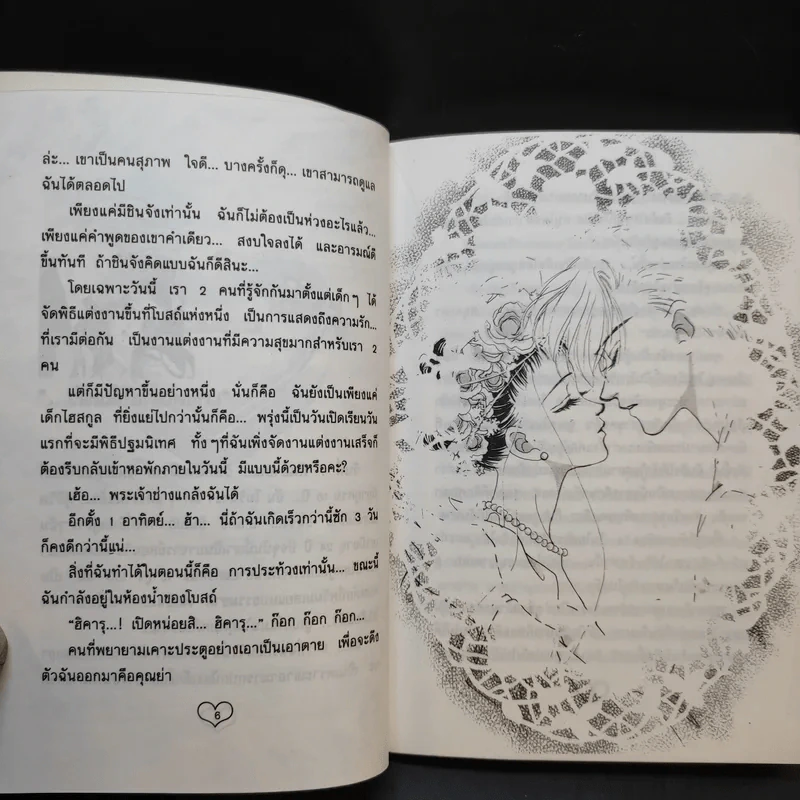 ล่ะ... เขาเป็นคนสุภาพ ใจดี... บางครั้งก็ดุ... เขาสามารถดูแล
ฉันได้ตลอดไป
เพียงแค่มีชินจังเท่านั้น ฉันก็ไม่ต้องเป็นห่วงอะไรแล้ว...
เพียงแค่คำพูดของเขาคำเดียว... สงบใจลงได้ และอารมณ์ดี
ขึ้นทันที ถ้าชินจังคิดแบบฉันก็ดีสินะ...
โดยเฉพาะวันนี้ เรา 2 คนที่รู้จักกันมาตั้งแต่เด็กๆ ได้
จัดพิธีแต่งงานขึ้นที่โบสถ์แห่งหนึ่ง เป็นการแสดงถึงความรัก...
ที่เรามีต่อกัน เป็นงานแต่งงานที่มีความสุขมากสำหรับเรา 2
คน
แต่ก็มีปัญหาขึ้นอย่างหนึ่ง นั่นก็คือ ฉันยังเป็นเพียงแค่
เด็กไฮสกูล ที่ยิ่งแย่ไปกว่านั้นก็คือ... พรุ่งนี้เป็นวันเปิดเรียนวัน
แรกที่จะมีพิธีปฐมนิเทศ ทั้งๆที่ฉันเพิ่งจัดงานแต่งงานเสร็จก็
ต้องรีบกลับเข้าหอพักภายในวันนี้ มีแบบนี้ด้วยหรือคะ?
เฮ้อ... พระเจ้าช่างแกล้งฉันได้
อีกตั้ง 1 อาทิตย์... ฮ้า... นี่ถ้าฉันเกิดเร็วกว่านี้ซัก 3 วัน
ก็คงดีกว่านี้แน่...
สิ่งที่ฉันทำได้ในตอนนี้ก็คือ การประท้วงเท่านั้น... ขณะนี้
ฉันกำลังอยู่ในห้องน้ำของโบสถ์
“ฮิคารุ...! เปิดหน่อยสิ... ฮิคารุ...” ก๊อก ก๊อก ก๊อก...
คนที่พยายามเคาะประตูอย่างเอาเป็นเอาตาย เพื่อจะดึง
ตัวฉันออกมาคือคุณย่า
6